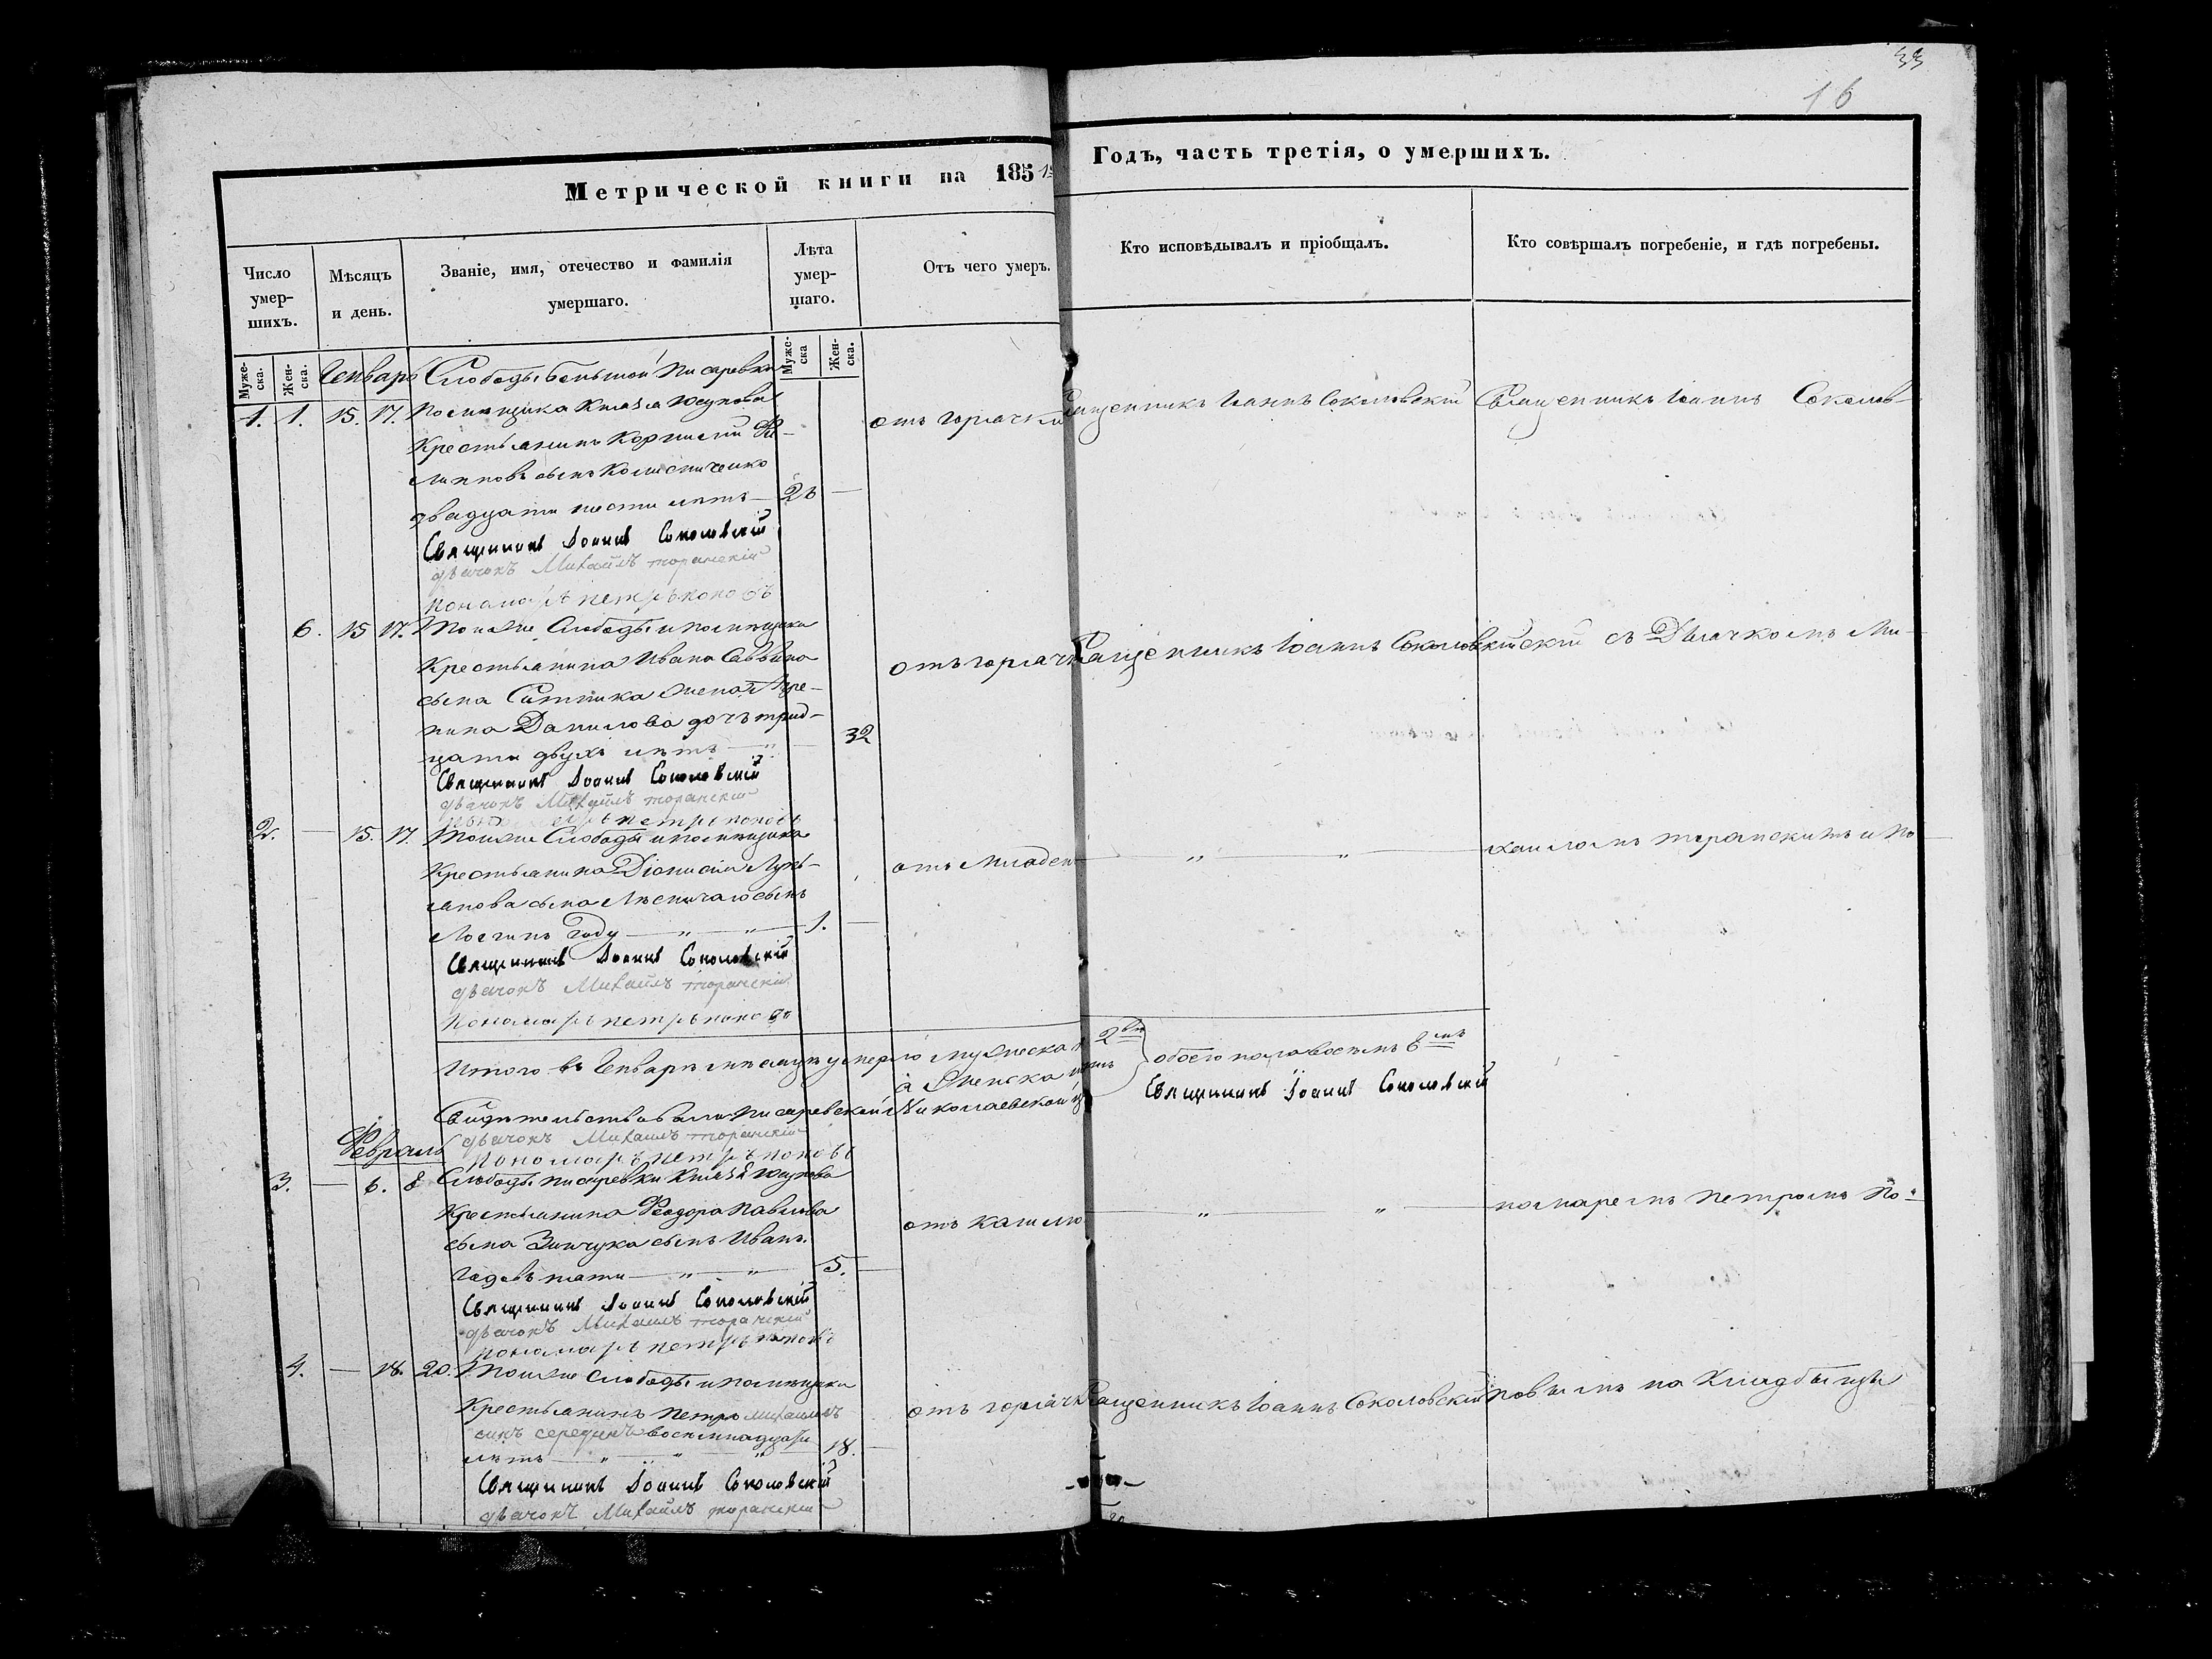 33
16
Метрической книги на 1851
Годъ, часть третія, о умершихъ.
Число умер-
шихъ.
Мѣсяцъ
и день.
Званіе, имя, отечество и фамилія
умершаго.
Лѣта
умер-
шаго.
Отъ чего умеръ.
Кто исповѣдывалъ и пріобщалъ.
Кто совѣршалъ погребеніе, и гдѣ погребены.
Муже-
ска.
Жен-
ска.
Муже-
ска
Жен-
ска.
Генварь Слободы большой Писаревки
1. 1. 15. 17. Помѣщика Князя Юсупова
Крестьянинъ Корнилій Фи-
липповъ сынъ Колисниченко
двадцати шести лѣтъ — 26 —
отъ горячки
Священникъ Іоаннъ Соколовскій
Священникъ Іоаннъ Соколов-
Священникъ Іоаннъ Соколовскій
дьячокъ Михаилъ торанскій
пономарь петръ поповъ
6. 15 17. Тойже Слободы и помѣщика
Крестьянина Ивана Саввина
сына Ситника жена Ире-
нина Данилова дочь трид-
цати двухъ лѣтъ — " — 32
отъ горячки
Священникъ Іоаннъ Соколовскій
скій съ Дьячкомъ Ми-
Священникъ Іоаннъ Соколовскій
дьячокъ Михаилъ торанскій
петръ поповъ
2. — 15. 17. Тойже Слободы и помѣщика
Крестьянина Діонисія Лукь-
янова сына сынъ
Логинъ Году — " — " — 1. —
отъ Младен
— " — " —
хаиломъ торанскимъ и По-
Священникъ Іоаннъ Соколовскій
дьячокъ Михаилъ торанскій
Пономарь петръ поповъ
Итого въ Генварѣ мѣсяцѣ умерло мужеска 2
а Женска
обоего пола восемь 8
Священникъ Іоаннъ Соколовскій
Писаревской Николаевской
дьячокъ Михаилъ торанскій
пономарь петръ поповъ
Февраль
3. — 6. 8 Слободы писаревки Князя Юсупова
Крестьянина Феодора Павлова
сына Зинчука сынъ Иванъ.
Годовъ пяти — " — " — 5. —
отъ кашлю
— " — " —
номаремъ Петромъ По-
Священникъ Іоаннъ Соколовскій
дьячокъ Михаилъ торанскій
пономарь петръ поповъ
4. — 18. 20. Тойже Слободы и помѣщика
Крестьянинъ Петръ михаиловъ
синъ середикъ восемнадцати
лѣтъ — " — " — " 18. —
отъ горячки
Священникъ Іоаннъ Соколовскій
повымъ на Кладбыщѣ
Священникъ Іоаннъ Соколовскій
дьячокъ Михаилъ торанскій